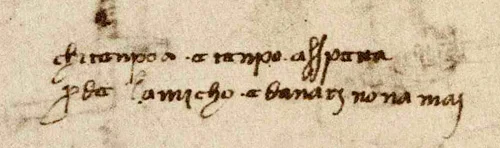 chi tenpo a · e tenpo · asspetta
ꝑde lamicho · e danari no na mai